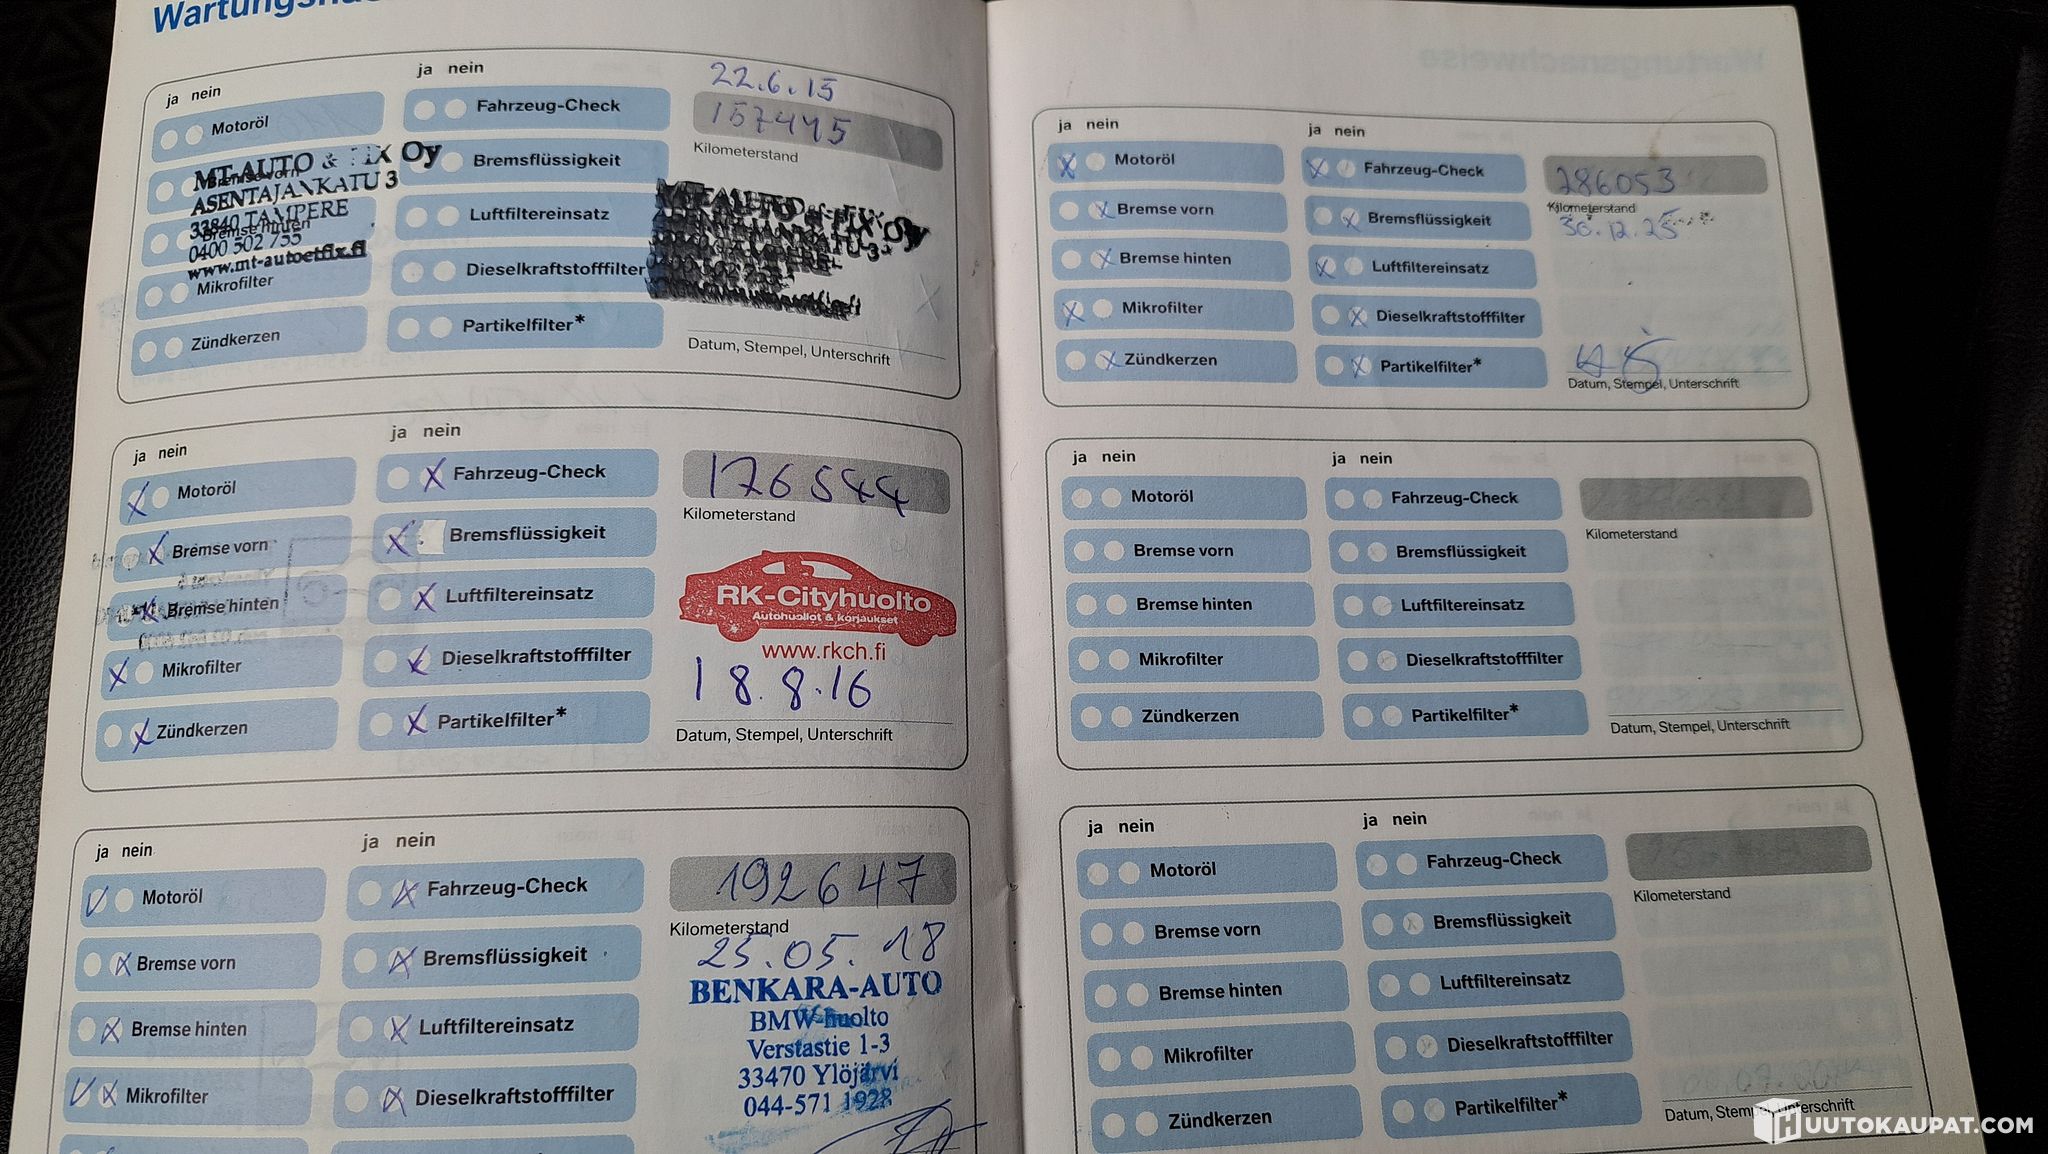 ja nein
Motoröl
Mikrofilter
Zündkerzen
MT-AUTO & FIX Oy
ASENTAJANKATU 3
33840 TAMPERE
0400 502 755
www.mt-autoetfix.fi
ja nein
Fahrzeug-Check
Bremsflüssigkeit
Luftfiltereinsatz
Dieselkraftstofffilter
Partikelfilter*
22.6.15
157445
Kilometerstand
Datum, Stempel, Unterschrift
ja nein
Motoröl
Bremse vorn
Bremse hinten
Mikrofilter
Zündkerzen
ja nein
Fahrzeug-Check
Bremsflüssigkeit
Luftfiltereinsatz
Dieselkraftstofffilter
Partikelfilter*
176544
Kilometerstand
RK-Cityhuolto
Autohuollot & korjaukset
www.rkch.fi
18.8.16
Datum, Stempel, Unterschrift
ja nein
Motoröl
Bremse vorn
Bremse hinten
Mikrofilter
ja nein
Fahrzeug-Check
Bremsflüssigkeit
Luftfiltereinsatz
Dieselkraftstofffilter
192647
Kilometerstand
25.05.18
BENKARA-AUTO
BMW-huolto
Verstastie 1-3
33470 Ylöjärvi
044-571 1928
ja nein
Motoröl
Bremse vorn
Bremse hinten
Mikrofilter
Zündkerzen
ja nein
Fahrzeug-Check
Bremsflüssigkeit
Luftfiltereinsatz
Dieselkraftstofffilter
Partikelfilter*
286053
Kilometerstand
30.12.25
Datum, Stempel, Unterschrift
ja nein
Motoröl
Bremse vorn
Bremse hinten
Mikrofilter
Zündkerzen
ja nein
Fahrzeug-Check
Bremsflüssigkeit
Luftfiltereinsatz
Dieselkraftstofffilter
Partikelfilter*
Kilometerstand
Datum, Stempel, Unterschrift
ja nein
Motoröl
Bremse vorn
Bremse hinten
Mikrofilter
Zündkerzen
ja nein
Fahrzeug-Check
Bremsflüssigkeit
Luftfiltereinsatz
Dieselkraftstofffilter
Partikelfilter*
Kilometerstand
Datum, Stempel, Unterschrift
HUUTOKAUPAT.COM